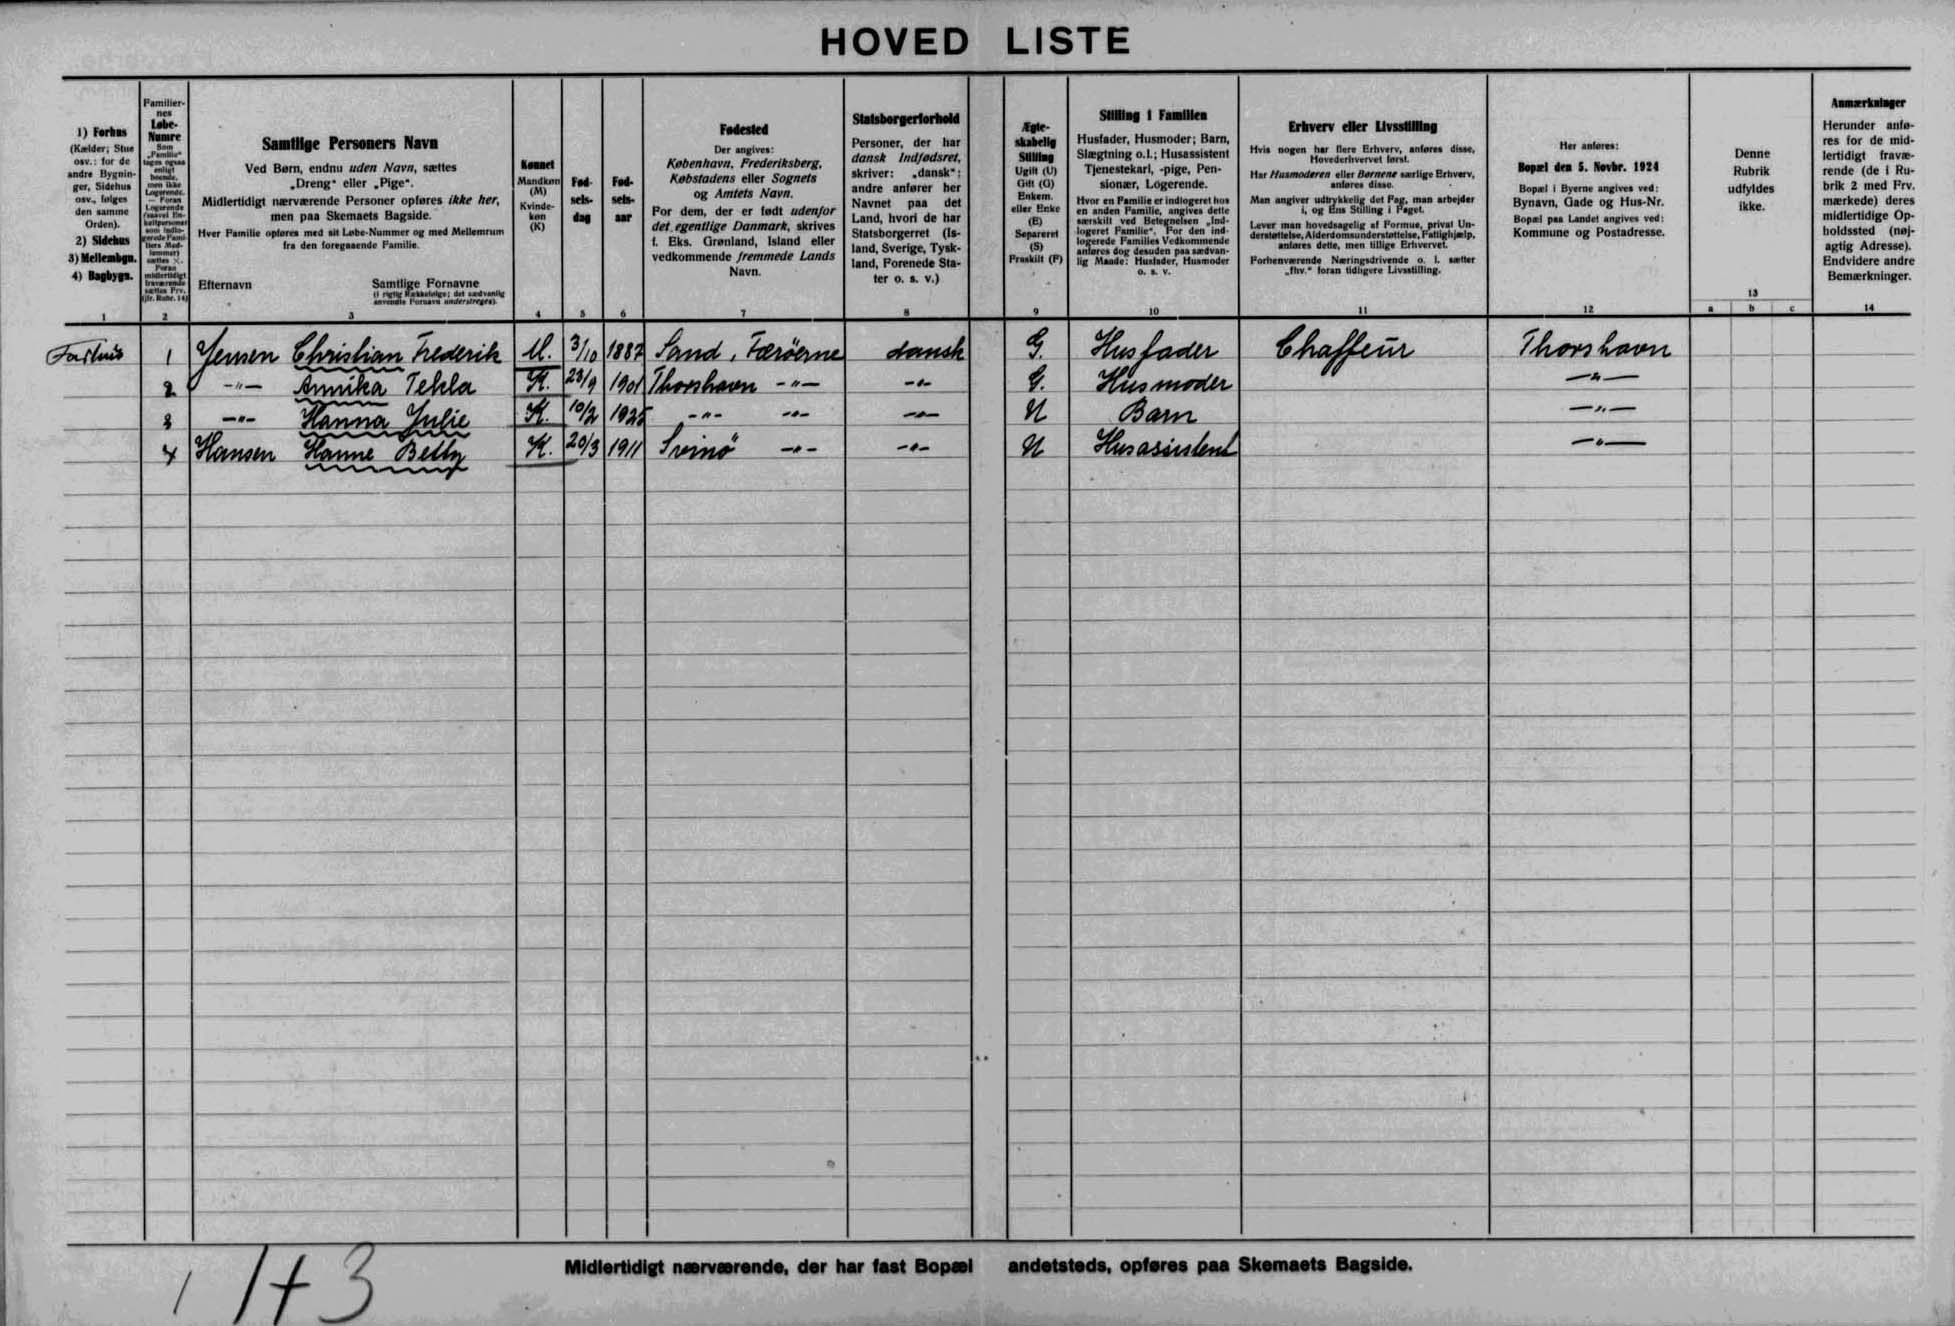 HOVED LISTE
1) Forhus
(Kælder; Stue
osv.: for de
andre Bygnin-
ger, Sidehus
osv., følges
den samme
Orden).
2) Sidehus
3) Mellembgn.
4) Bagbygn.
1
Familier-
nes
Løbe-
Numre
Som
„Familie“
tages ogsaa
enligt
boende,
men ikke
Logerende.
— Foran
Logerende
(saavel En-
keltpersoner
som indlo-
gerede Fami-
liers Med-
lemmer)
sættes ×.
Foran
midlertidigt
fraværende
sættes Frv.
(jfr. Rubr. 14)
2
Samtlige Personers Navn
Ved Børn, endnu uden Navn, sættes
„Dreng“ eller „Pige“.
Midlertidigt nærværende Personer opføres ikke her,
men paa Skemaets Bagside.
Hver Familie opføres med sit Løbe-Nummer og med Mellemrum
fra den foregaaende Familie.
Efternavn Samtlige Fornavne
(i rigtig Rækkefølge; det sædvanlig
anvendte Fornavn understreges).
3
Kønnet
Mandkøn
(M)
Kvinde-
køn
(K)
4
Fød-
sels-
dag
5
Fød-
sels-
aar
6
Fødested
Der angives:
København, Frederiksberg,
Købstadens eller Sognets
og Amtets Navn.
For dem, der er født udenfor
det egentlige Danmark, skrives
f. Eks. Grønland, Island eller
vedkommende fremmede Lands
Navn.
7
Statsborgerforhold
Personer, der har
dansk Indfødsret,
skriver: „dansk“;
andre anfører her
Navnet paa det
Land, hvori de har
Statsborgerret (Is-
land, Sverige, Tysk-
land, Forenede Sta-
ter o. s. v.)
8
Ægte-
skabelig
Stilling
Ugift (U)
Gift (G)
Enkem.
eller Enke
(E)
Separeret
(S)
Fraskilt (F)
9
Stilling i Familien
Husfader, Husmoder; Barn,
Slægtning o.l.; Husassistent
Tjenestekarl, -pige, Pen-
sionær, Logerende.
Hvor en Familie er indlogeret hos
en anden Familie, angives dette
særskilt ved Betegnelsen „Ind-
logeret Familie“. For den ind-
logerede Families Vedkommende
anføres dog desuden paa sædvan-
lig Maade: Husfader, Husmoder
o. s. v.
10
Erhverv eller Livsstilling
Hvis nogen har flere Erhverv, anføres disse,
Hovederhvervet først.
Har Husmoderen eller Børnene særlige Erhverv,
anføres disse.
Man angiver udtrykkelig det Fag, man arbejder
i, og Ens Stilling i Faget.
Lever man hovedsagelig af Formue, privat Un-
derstøttelse, Alderdomsunderstøttelse, Fattighjælp,
anføres dette, men tillige Erhvervet.
Forhenværende Næringsdrivende o. l. sætter
„fhv.“ foran tidligere Livsstilling.
11
Her anføres:
Bopæl den 5. Novbr. 1924
Bopæl i Byerne angives ved:
Bynavn, Gade og Hus-Nr.
Bopæl paa Landet angives ved:
Kommune og Postadresse.
12
Denne
Rubrik
udfyldes
ikke.
13
a b c
Anmærkninger
Herunder anfø-
res for de mid-
lertidigt fravæ-
rende (de i Ru-
brik 2 med Frv.
mærkede) deres
midlertidige Op-
holdssted (nøj-
agtig Adresse).
Endvidere andre
Bemærkninger.
14
Forhus 1 Jensen Christian Frederik M. 3/10 1887 Sand, Færøerne dansk G. Husfader Chaffeur Thorshavn
2 -"- Annika Tekla K. 23/9 1901 Thorshavn -"- -"- G. Husmoder -"-
3 -"- Hanna Julie K. 10/2 1925 -"- -"- -"- U Barn -"-
4 Hansen Hanne Betty K. 20/3 1911 Svinö -"- -"- U Husassistent -"-
Midlertidigt nærværende, der har fast Bopæl andetsteds, opføres paa Skemaets Bagside.
1 1+3